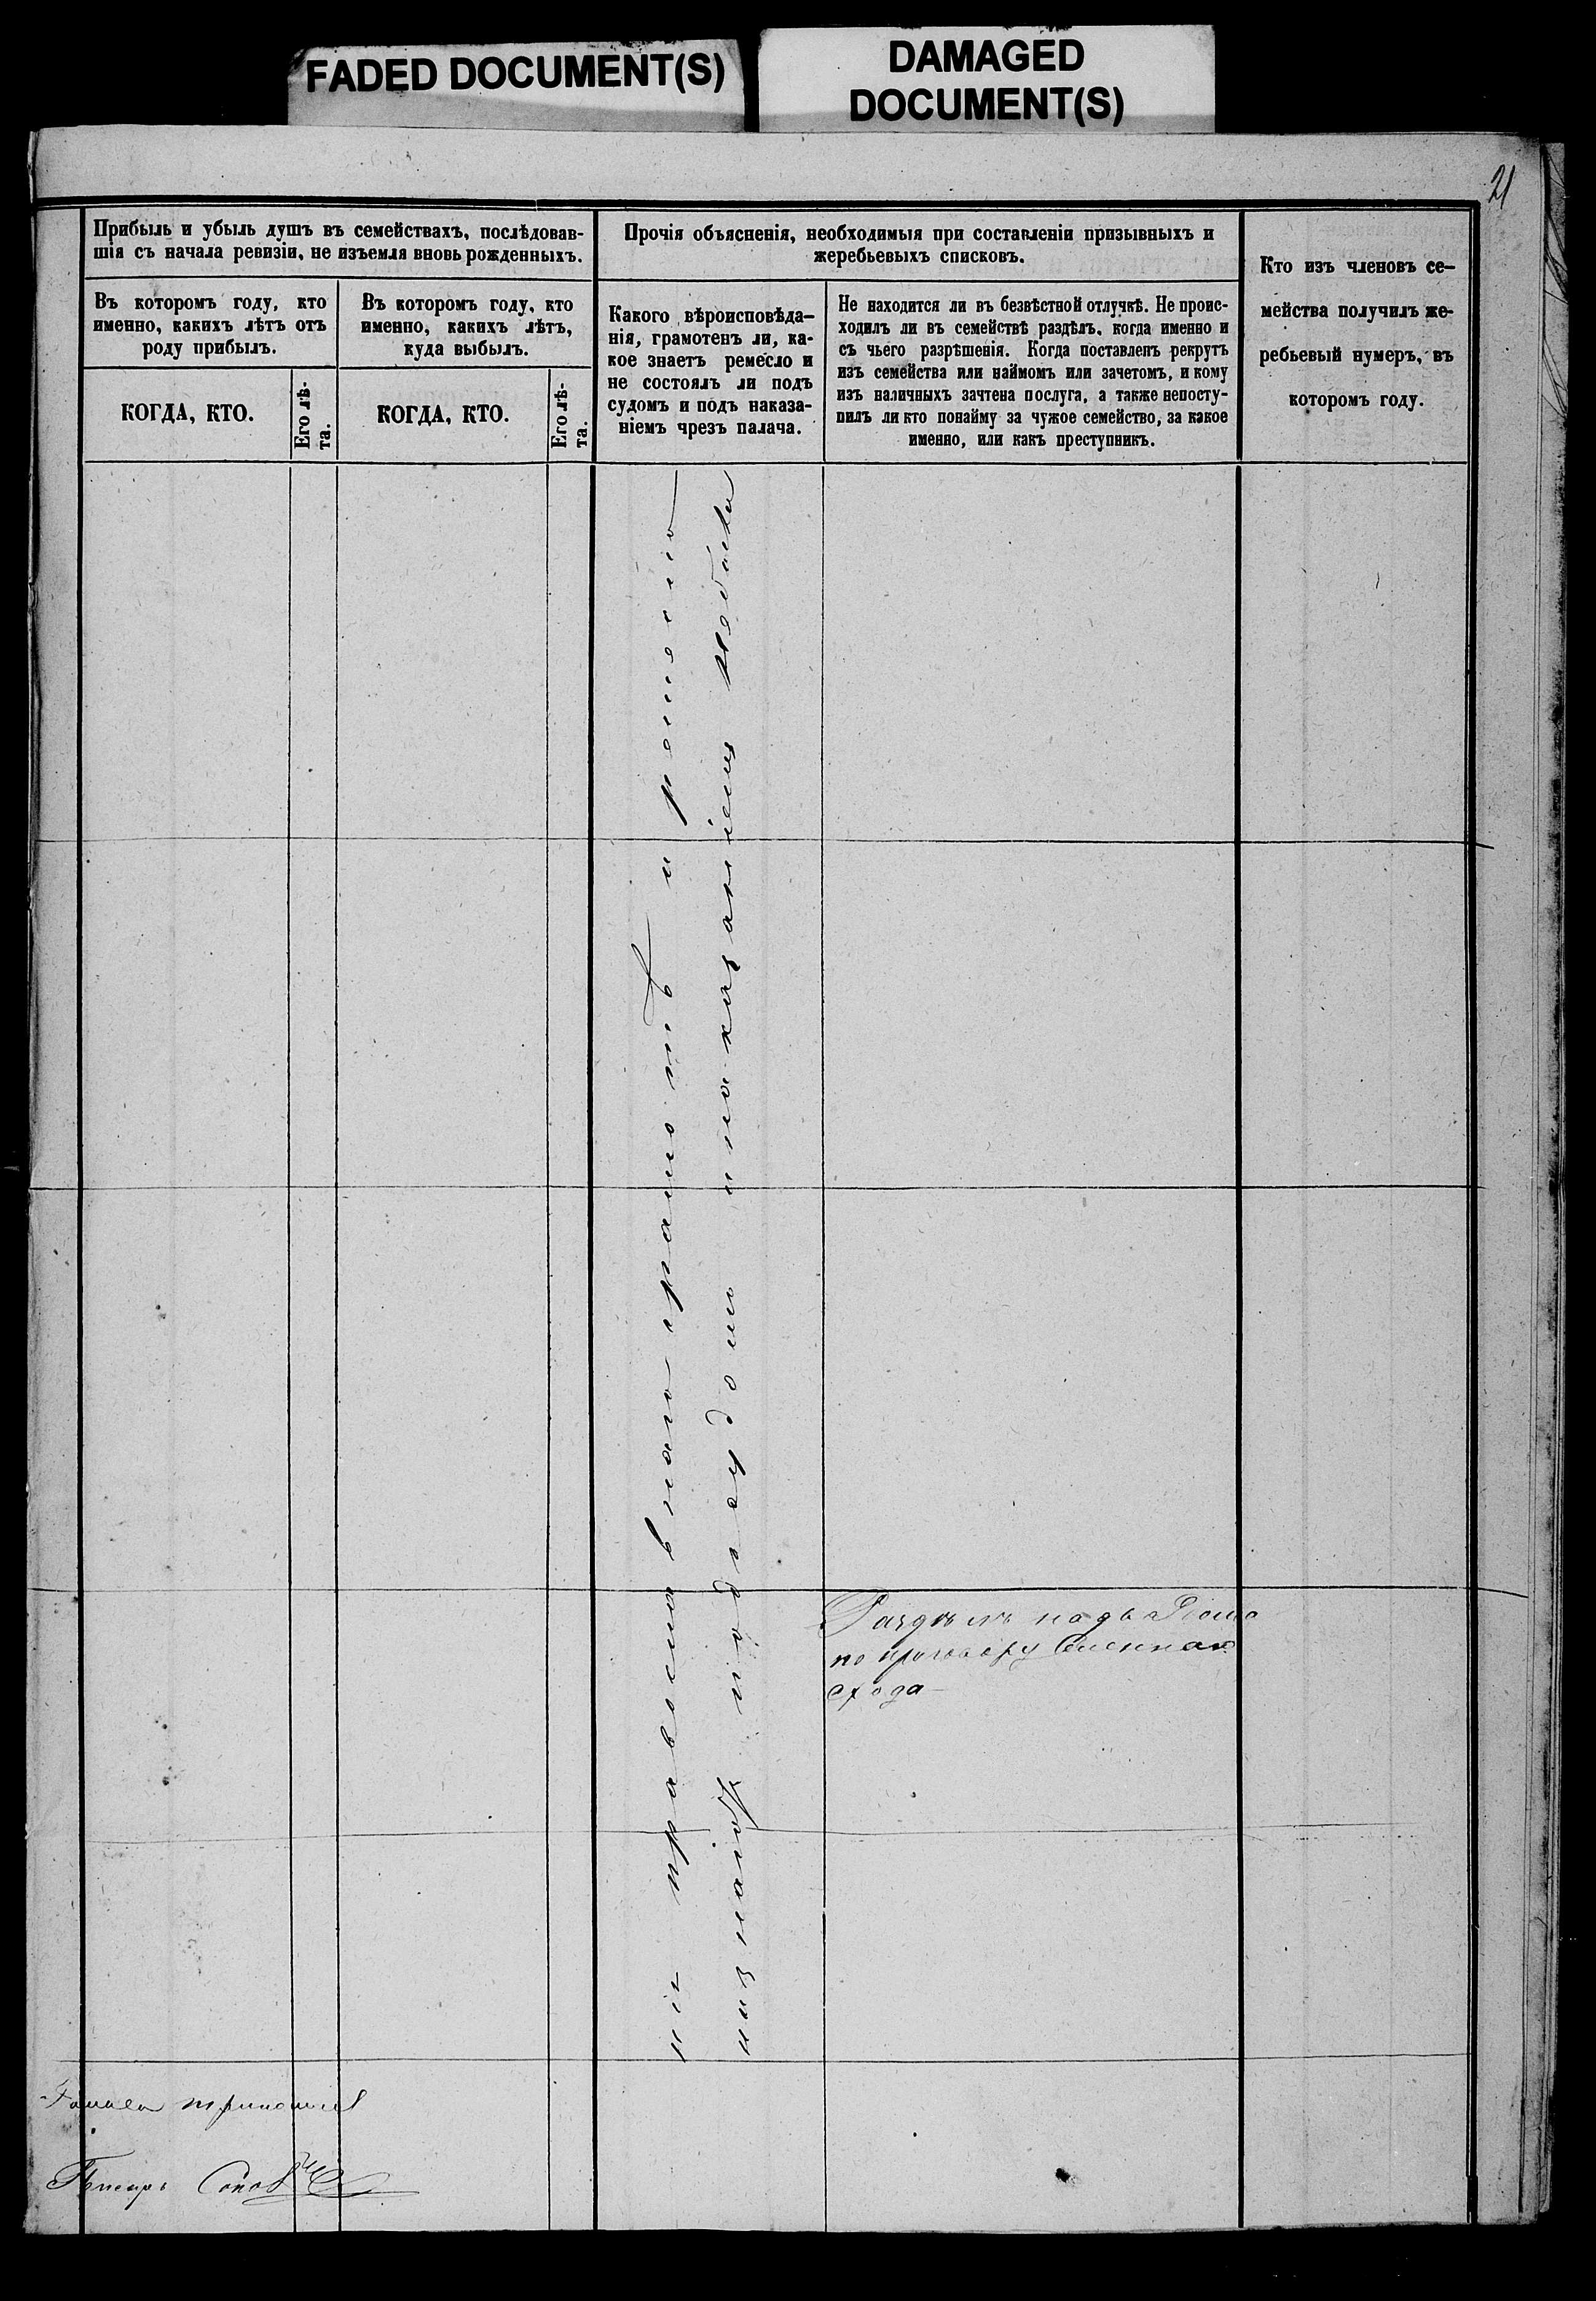 FADED DOCUMENT(S)
DAMAGED
DOCUMENT(S)
21
Прибыль и убыль душъ въ семействахъ, послѣдовав-
шія съ начала ревизіи, не изъемля вновь рожденныхъ.
Въ которомъ году, кто
именно, какихъ лѣтъ отъ
роду прибылъ.
КОГДА, КТО.
Его лѣ-
та.
Въ которомъ году, кто
именно, какихъ лѣтъ,
куда выбылъ.
КОГДА, КТО.
Его лѣ-
та.
Прочія объясненія, необходимыя при составленіи призывныхъ и
жеребьевыхъ списковъ.
Какого вѣроисповѣда-
нія, грамотенъ ли, ка-
кое знаетъ ремесло и
не состоялъ ли подъ
судомъ и подъ наказа-
ніемъ чрезъ палача.
Не находится ли въ безвѣстной отлучкѣ. Не проис-
ходилъ ли въ семействѣ раздѣлъ, когда именно и
съ чьего разрѣшенія. Когда поставленъ рекрутъ
изъ семейства или наймомъ или зачетомъ, и кому
изъ наличныхъ зачтена послуга, а также непосту-
пилъ ли кто понайму за чужое семейство, за какое
именно, или какъ преступникъ.
Кто изъ членовъ се-
мейства получилъ же-
ребьевый нумеръ, въ
которомъ году.
православнаго грамотѣ и
подсудом и наказаніем
по приговору
схода